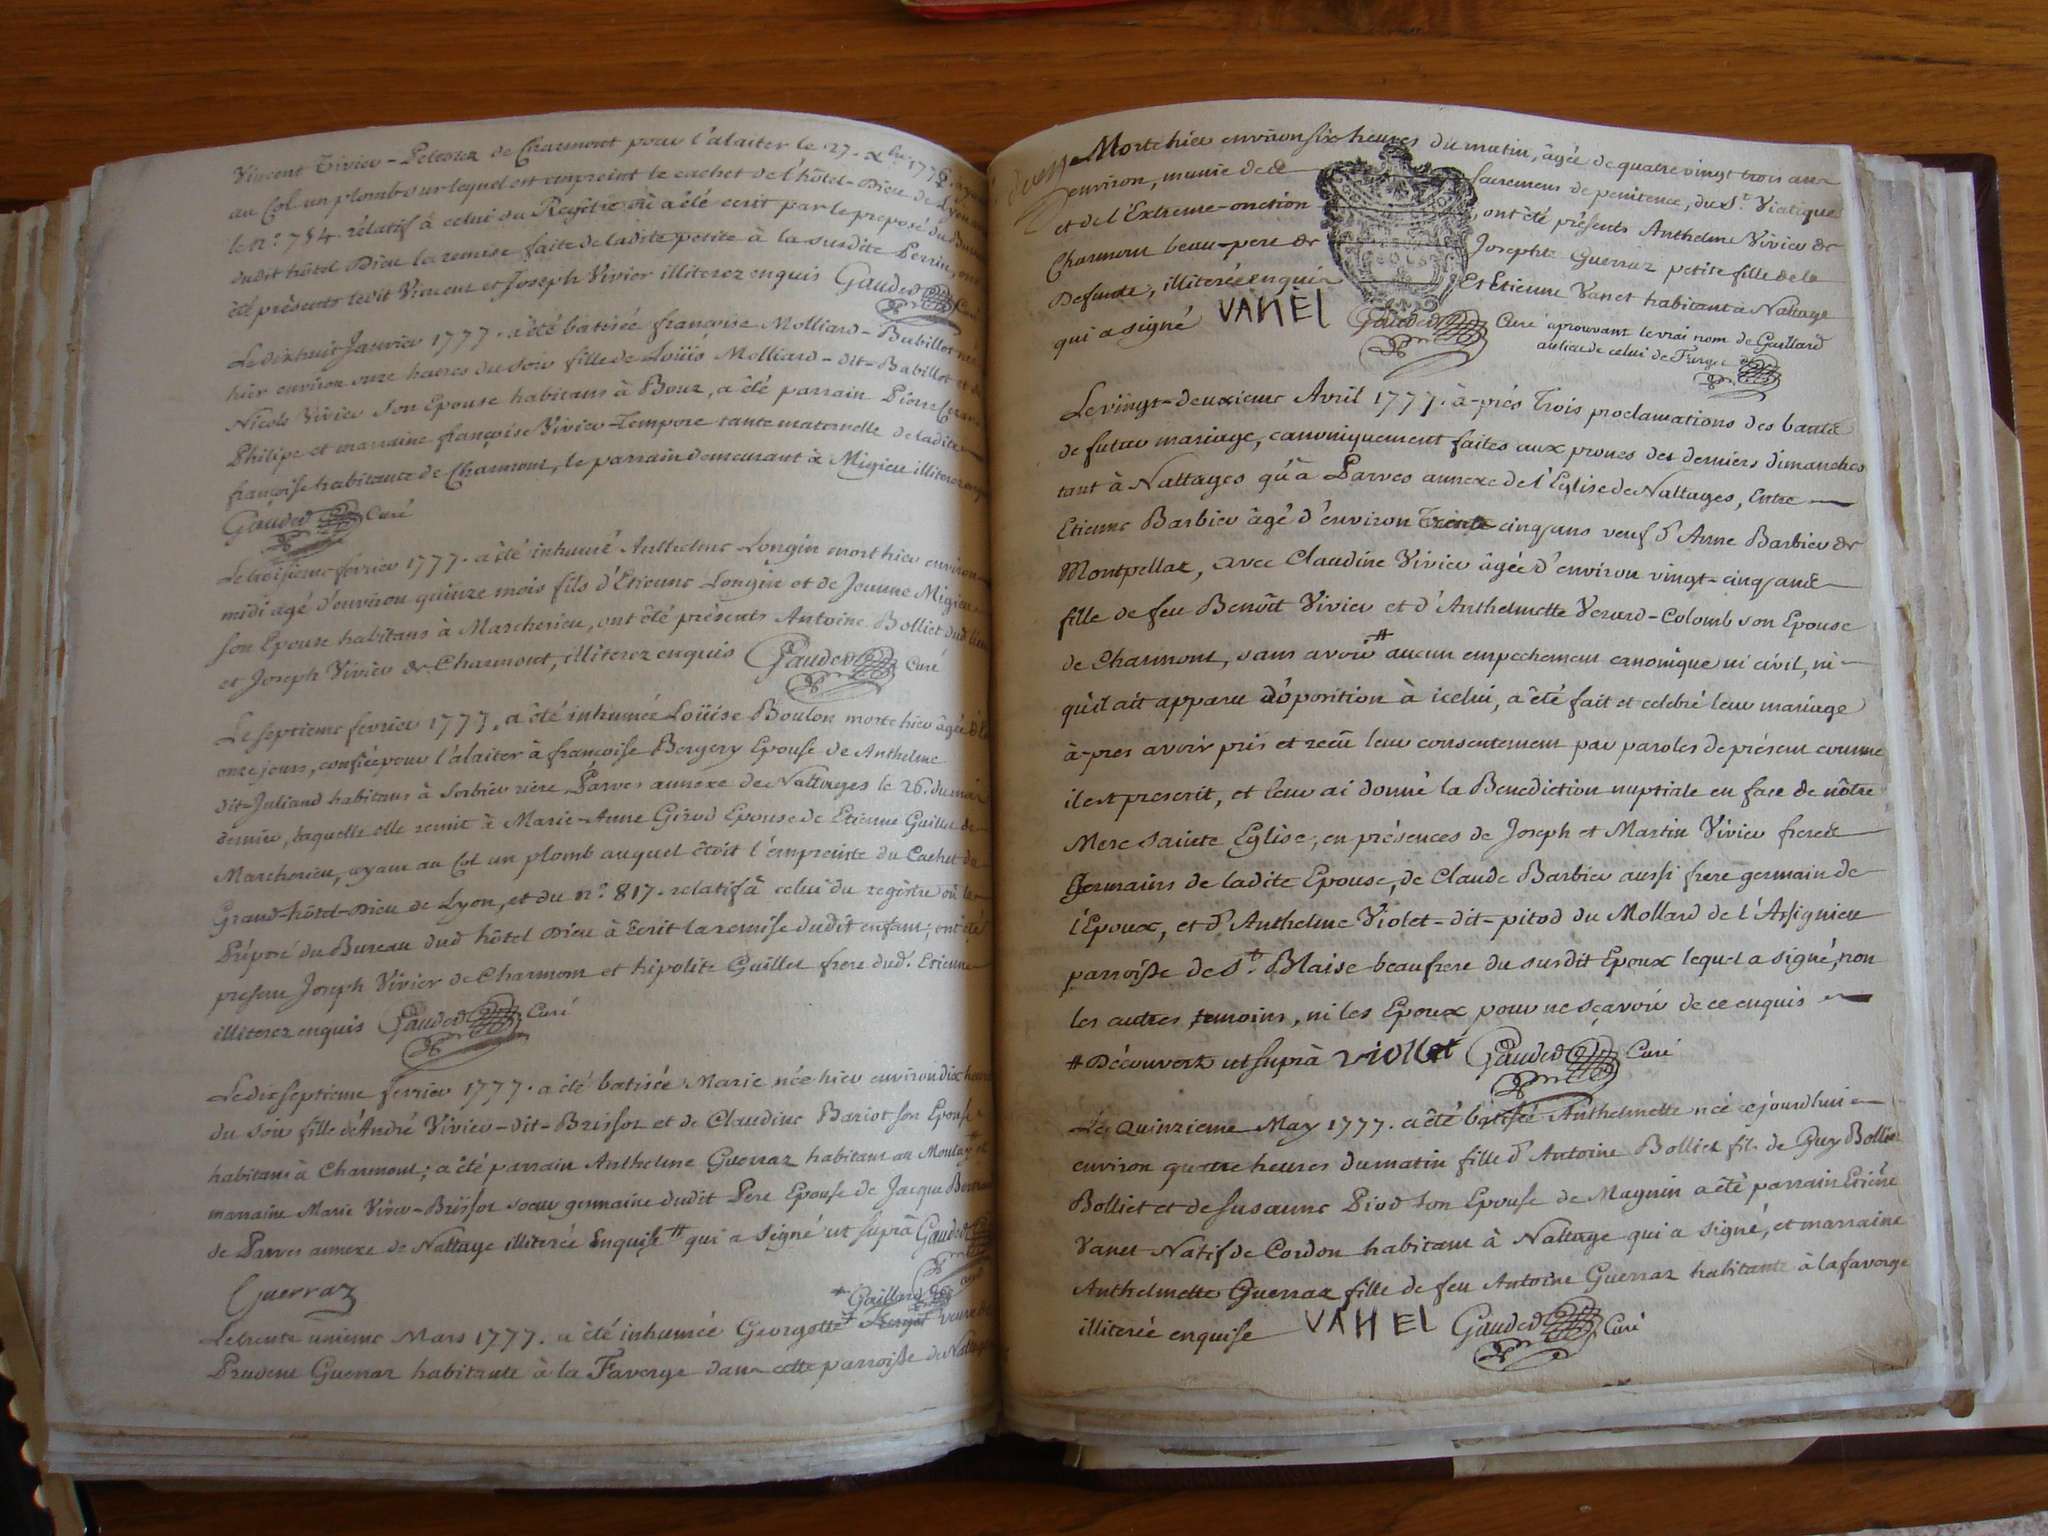 Vincent Tivier - Peloux de Charmont pour l'alaiter le 27. xbre 1776
au Col un plomb sur lequel est empreint le cachet de l'hôtel-Dieu de Lyon
le n.° 754. rélatif à celui du Registre où a été ecrit par le preposé du Bureau
dudit hôtel Dieu la remise faite de ladite petite à la susdite Perrin, ont
été présents ledit Vincent et Joseph Vivier illiterez enquis Gauded Curé
Le dixhuit Janvier 1777. a été batisée françoise Molliard - Babillot née
hier environ onze heures du soir fille de Loüis Molliard - dit - Babillot et de
Nicole Vivier Son Epouse habitans à Bour, a été parrain Pierre
Philipe et marraine françoise Vivier-Tempore tante maternelle de ladite
françoise habitante de Charmont, le parrain demeurant à Migieu illiterez enquis
Gauded Curé
Le troisieme fevrier 1777. a été inhumé Anthelme Longin mort hier environ
midi agé d'environ quinze mois fils d'Etienne Longin et de Jeanne Migieu
son Epouse habitans à Marcherieu, ont été présents Antoine Bolliet dud. lieu
et Joseph Vivier de Charmont, illiterez enquis Gauded Curé
Le septieme fevrier 1777, a été inhumée Loüise Boulon morte hier âgée de
onze jours, confiée pour l'alaiter à françoise Bergery Epouse de Anthelme
dit-Juliand habitans à Sorbieu riere Parves annexe de Nattages le 26. du mois
dernier, laquelle elle remit à Marie-Anne Girod Epouse de Etienne Guillet de
Marcherieu, ayant au Col un plomb auquel étoit l'empreinte du Cachet du
Grand-hôtel-Dieu de Lyon, et du n.° 817. relatif à celui du regitre où le
Préposé du Bureau dud. hôtel Dieu à Ecrit la remise dudit enfant, ont été
presens Joseph Vivier de Charmont et hipolite Guillet frere dud. Etienne
illiterez enquis Gauded Curé
Le dixseptieme fevrier 1777. a été batisée Marie née hier environ dix heures
du soir fille d'André Vivier-dit-Brissot et de Claudine Bariot son Epouse
habitans à Charmont; a été parrain Anthelme Guerraz habitant au Moulay # et
marraine Marie Vivier-Brissot soeur germaine dudit Pere Epouse de Jacque
de Parves annexe de Nattage illiterée Enquise # qui a signé ut suprà Gauded
Guerraz
* Gaillard
Le trente unieme Mars 1777. a été inhumée Georgette * Ferget veuve de
Prudent Guerraz habitante à la Faverge dans cette parroisse de Nattage
Morte hier environ six heures du matin, âgée de quatre vingt trois ans
environ, munie de de sacremens de penitence, du St. Viatique
et de l'Extreme-onction, ont été présents Anthelme Vivier de
Charmont beau-pere de Josephte Guerraz petite fille de la
Defunte, illiteré enquis Et Etienne Vanet habitant à Nattage
qui a signé VANEL Gauded Curé aprouvant le vrai nom de Gaillard
au lieu de celui de Ferget
Le vingt-deuxieme Avril 1777. à-prés Trois proclamations des bants
de futur mariage, canoniquement faites aux prones des derniers dimanches
tant à Nattages qu'à Parves annexe de l'Eglise de Nattages, Entre
Etienne Barbier âgé d'environ Trente cinq ans veuf d'Anne Barbier de
Montpellat, avec Claudine Vivier âgée d'environ vingt-cinq ans
fille de feu Benoît Vivier et d'Anthelmette Verard-Colomb son Epouse
de Charmont, sans avoir # aucun empechement canonique ni civil, ni
qu'il ait apparu d'óposition à icelui, a été fait et celebré leur mariage
à-pres avoir pris et reçû leur consentement par paroles de présent comme
il est prescrit, et leur ai donné la Benediction nuptiale en face de nôtre
Mere Sainte Eglise, en présences de Joseph et Martin Vivier freres
Germains de ladite Epouse, de Claude Barbier aussi frere germain de
l'Epoux, et d'Anthelme Violet-dit-pitod du Mollard de l'Assignieu
parroisse de St. Blaise beaufrere du susdit Epoux lequel a signé, non
les autres temoins, ni les Epoux pour ne sçavoir de ce enquis
# Découvert ut suprà viollet Gauded Curé
Le Quinzieme May 1777. a été batisée Anthelmette née cejourd'hui
environ quatre heures du matin fille d'Antoine Bolliet fils de Guy Bolliet
Bolliet et de Susanne Piod son Epouse de Magnin a été parrain Etiene
Vanet Natif de Cordon habitant à Nattage qui a signé, et marraine
Anthelmette Guerraz fille de feu Antoine Guerraz habitante à la faverge
illiterée enquise VANEL Gauded Curé